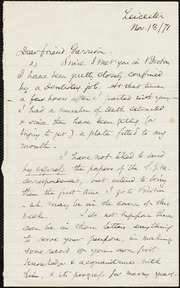 Leicester
Nov. 13/71
Dear friend Garrison
Since I met you in Boston
I have been pretty closely confined
by a dentistry job. At that time,
a few hours after I parted with you
I had a number of teeth extracted
& since then have been getting (or
trying to get) a plate fitted to my
mouth.
I have not liked to send
by express the papers of the
correspondence, but intend to bring
them the first time I go to Boston
wh. may be in the course of this
week. I do not suppose there
can be in those letters anything
to serve your purpose, in making
some record of your own first
knowledge & acquaintance with
him, & its progress for many years.